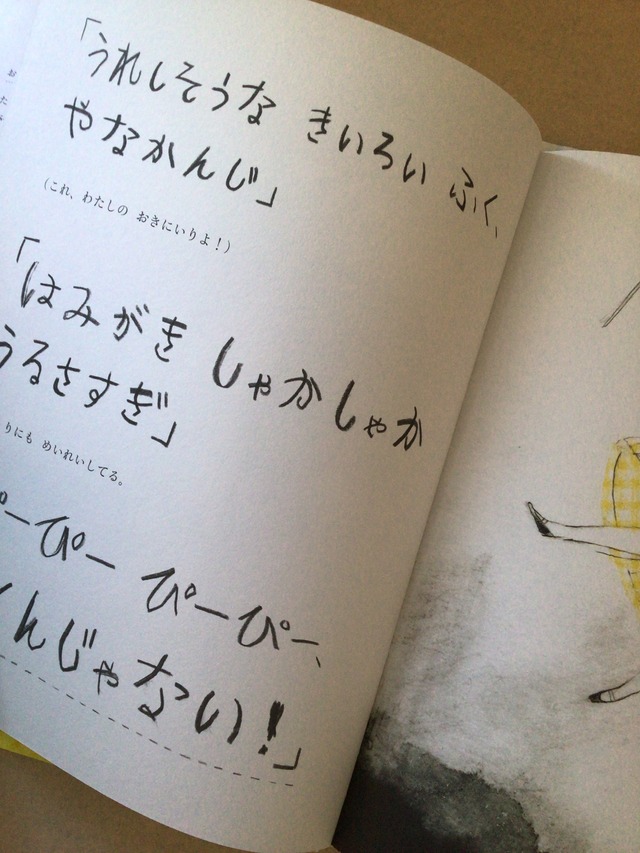 「うれしそうな きいろい ふく、
やなかんじ」
(これ、わたしの おきにいりよ！)
「はみがき しゃかしゃか
うるさすぎ」
りにも めいれいしてる。
ぴーぴー ぴーぴー、
んじゃない！」